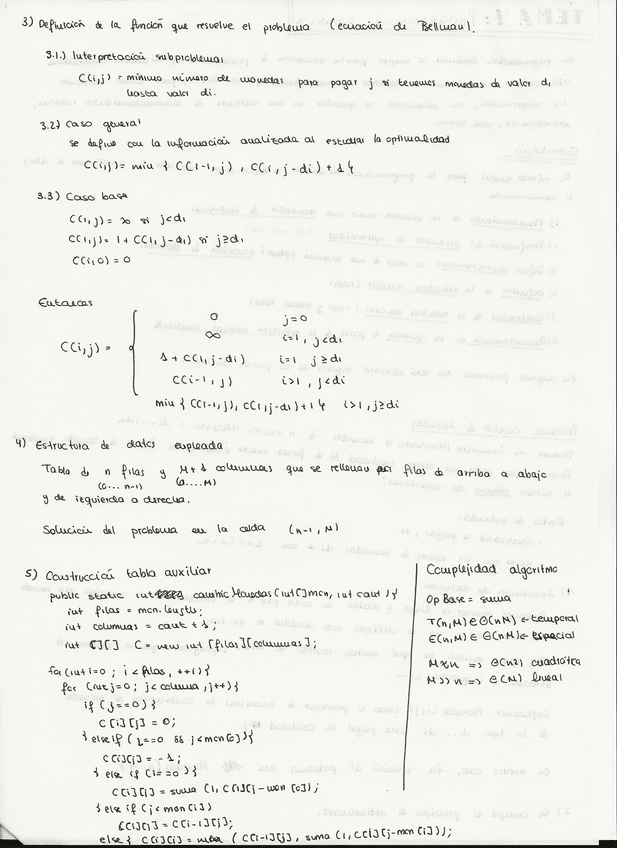 3) Definición de la función que resuelve el problema (ecuación de Bellman).
3.1.) Interpretación subproblemas
C(i,j) = mínimo número de monedas para pagar j si tenemos monedas de valor d1
hasta valor di.
3.2) Caso general
se define con la información analizada al estudiar la optimalidad
C(i,j) = min { C(i-1, j), C(i, j-di) + 1 }
3.3) Caso base
C(1,j) = ∞ si j<d1
C(1,j) = 1 + C(1, j-d1) si j≥d1
C(i,0) = 0
Entonces
C(i,j) =
0 j=0
∞ i=1, j<d1
1 + C(1, j-d1) i=1 j≥d1
C(i-1, j) i>1, j<di
min { C(i-1, j), C(i, j-di)+1 } i>1, j≥di
4) Estructura de datos empleada
Tabla de n filas y M+1 columnas que se rellenan por filas de arriba a abajo
(0...n-1) (0....M)
y de izquierda a derecha.
Solución del problema en la celda (n-1, M)
5) Construcción tabla auxiliar
public static int cambioMonedas(int[] mon, int cant) {
int filas = mon.length;
int columnas = cant + 1;
int [][] C = new int [filas][columnas];
for (int i=0; i<filas, ++i) {
for (int j=0; j<columna, j++) {
if (j==0) {
C[i][j] = 0;
} else if (i==0 && j<mon[0]) {
C[i][j] = -1;
} else if (i==0) {
C[i][j] = suma (1, C[i][j-mon[0]);
} else if (j<mon[i])
C[i][j] = C[i-1][j];
else { C[i][j] = (C[i-1][j], suma (1, C[i][j-mon[i]));
Complejidad algoritmo
Op Base = suma
T(n,M) ∈ Θ(nM) ← temporal
E(n,M) ∈ Θ(nM) ← espacial
M≈n => Θ(n2) cuadrática
M>>n => Θ(M) lineal